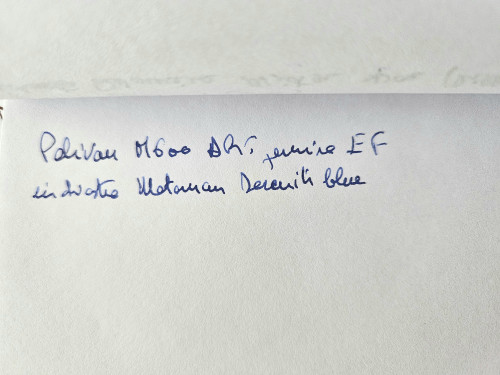 Pelikan M600 ART, pennino EF
inchiostro Waterman Serenity blue